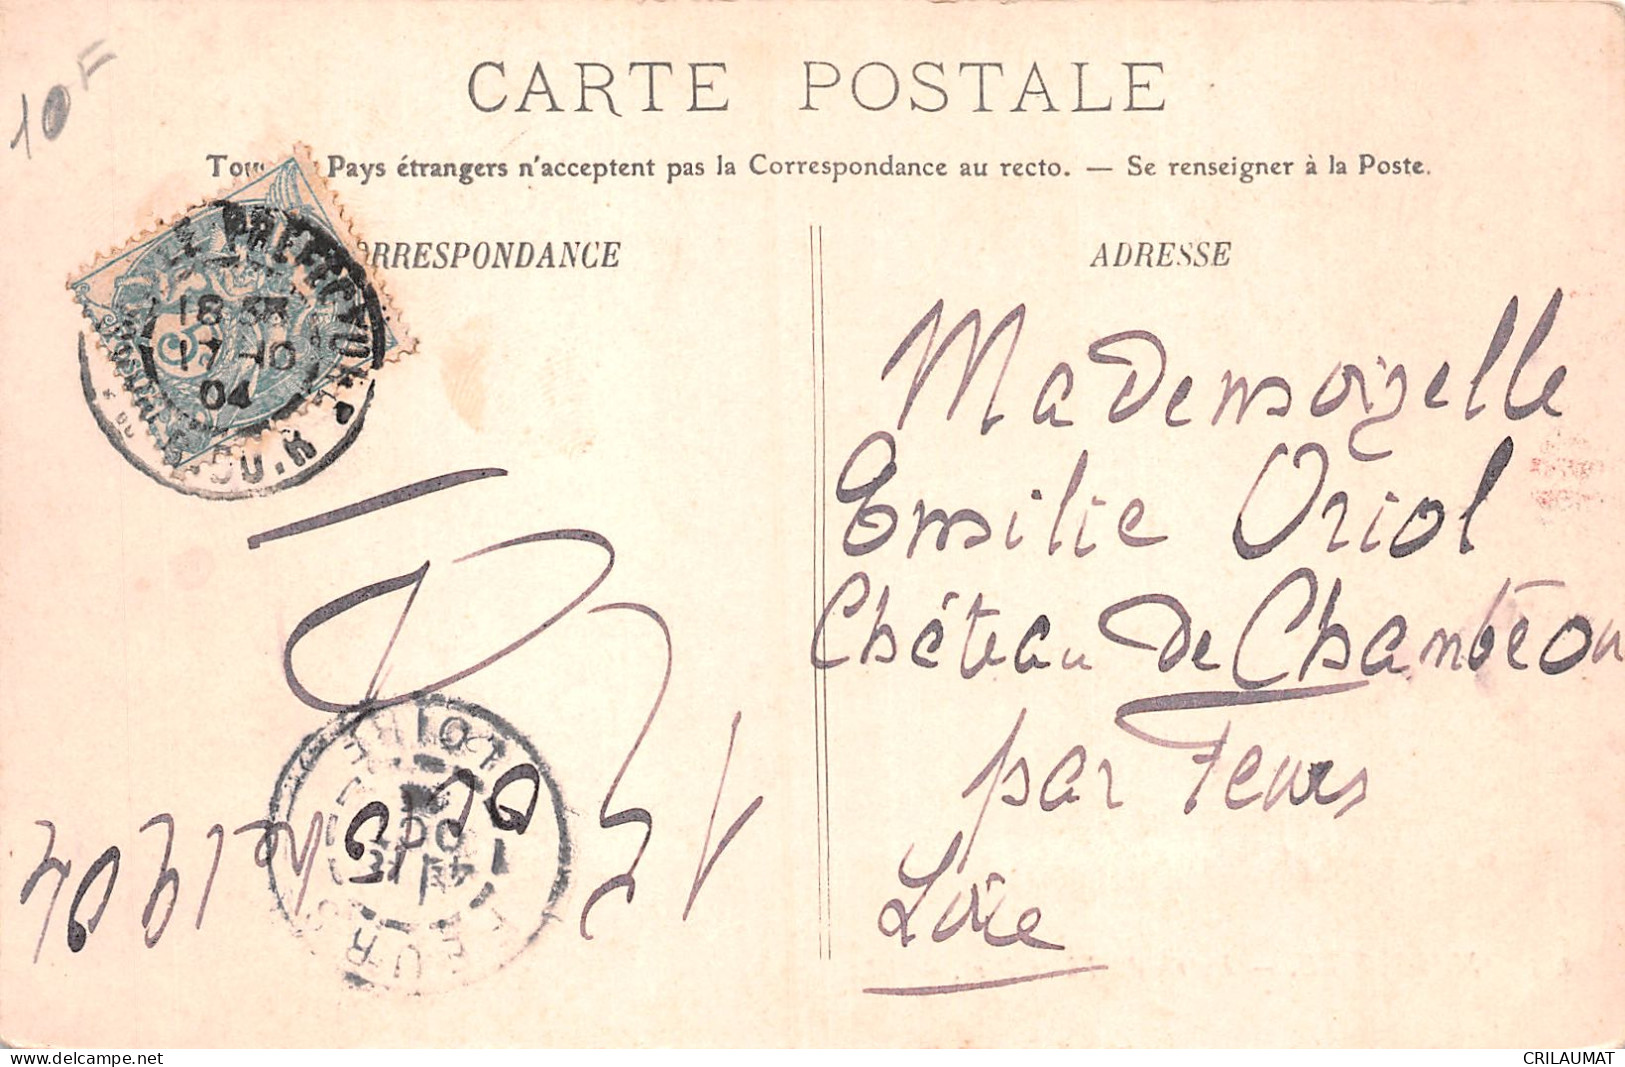 10F
CARTE POSTALE
Pays étrangers n'acceptent pas la Correspondance au recto. — Se renseigner à la Poste.
ORRESPONDANCE
ADRESSE
PREFECTURE
18
17-10
04
Mademoiselle
Emilie Oriol
Château de Chambéon
par Feurs
Loire
LOIRE
OCT
CRILAUMAT